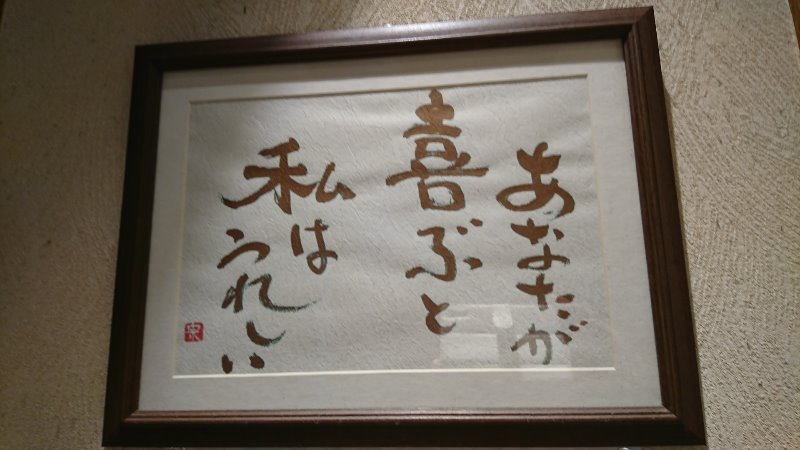 あなたが
喜ぶと
私は
うれしい